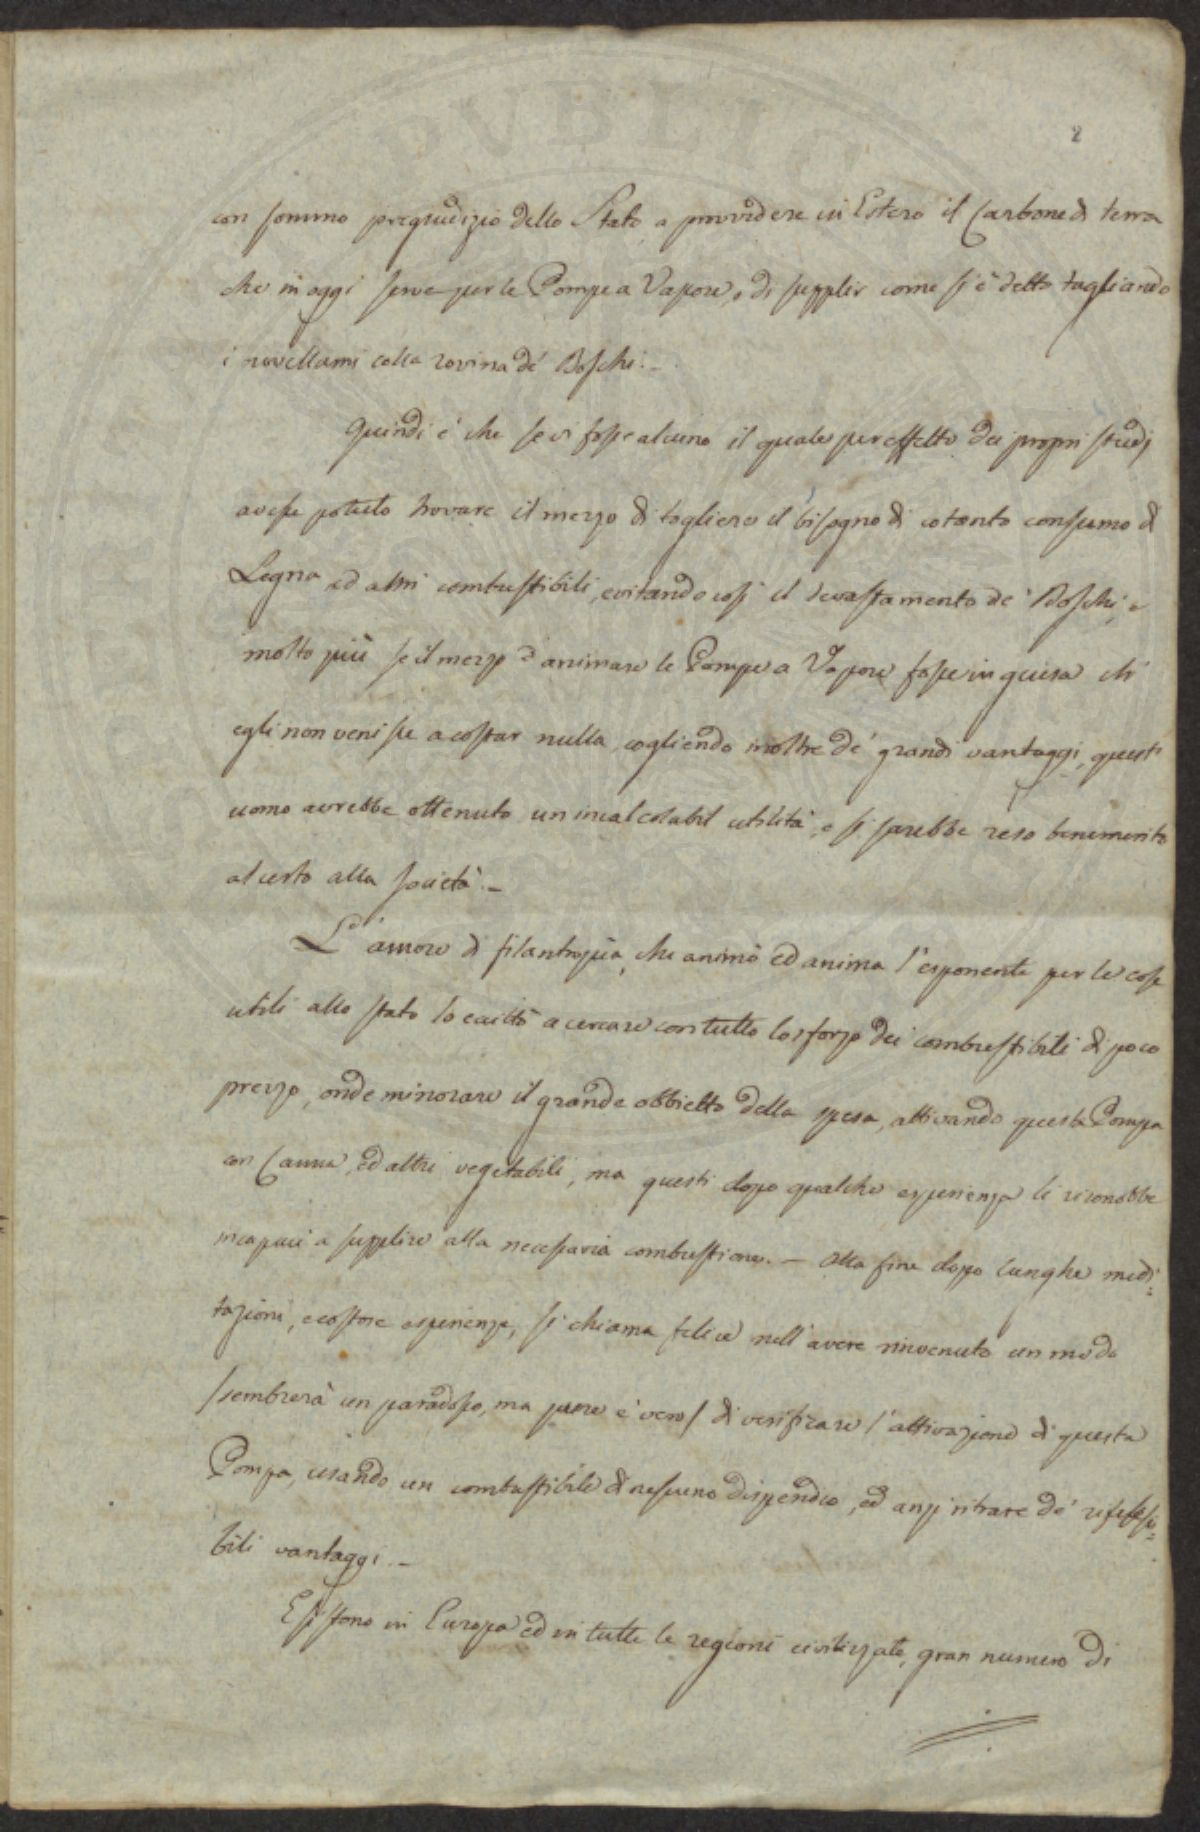 2
con sommo pregiudizio dello Stato a provvidere in Estero il Carbone di terra
che in oggi serve per le Pompe a Vapore, o di supplir come si è detto tagliando
i novellami colla rovina de' Boschi. –
Quindi è che se vi fosse alcuno il quale per effetto dei proprj studj
avesse potuto trovare il mezzo di togliere il bisogno di cotanto consumo di
Legna ed altri combustibili, evitando così il devastamento de' Boschi, e
molto più se il mezzo d'animare le Pompe a Vapore fosse in guisa ch'
egli non venisse a costar nulla, cogliendo inoltre de' grandi vantaggi, quest'
uomo avrebbe ottenuto un incalcolabil utilità, e si sarebbe reso benemerito
al certo alla società. –
L'amore di filantropia, che animò ed anima l'esponente per le cose
utili allo stato lo eccitò a cercare con tutto lo sforzo dei combustibili di poco
prezzo, onde minorare il grande obbietto della spesa, attivando questa Pompa
con Canne, ed altri vegetabili, ma questi dopo qualche esperienza li riconobbe
incapaci a supplire alla necessaria combustione. – Alla fine dopo lunghe medi=
tazioni, e costose esperienze, si chiama felice nell'avere rinvenuto un modo
/sembrerà un paradosso, ma pure è vero/ di verificare l'attivazione di questa
Pompa, usando un combustibile di nessuno dispendio, ed anzi ritrare de'
bili vantaggi. –
Esistono in Europa ed in tutte le regioni civilizzate, gran numero di